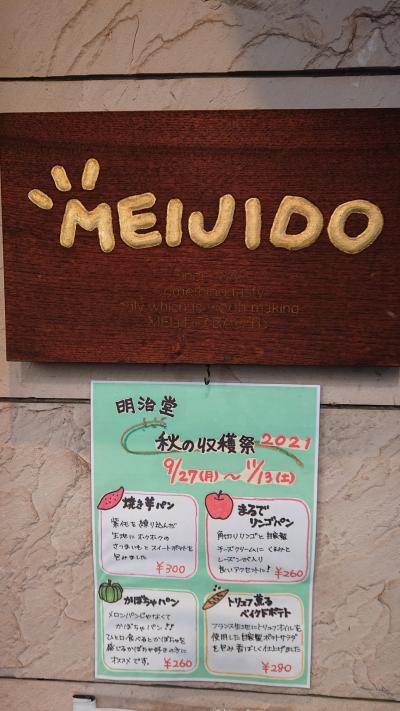 MEIJIDO
明治堂
秋の収穫祭 2021
9/27(月)～11/13(土)
焼き芋パン
紫イモを練り込んだ
生地にホクホクの
さつまいもとスイートポテトを
包みました
¥300
まるで
リンゴパン
角切りリンゴと自家製
チーズクリームにくるみと
レーズンが入り
良いアクセントに!
¥260
かぼちゃパン
メロンパンじゃなくて
かぼちゃパン!!
ひと口食べるとかぼちゃを
感じるかぼちゃ好きの方に
オススメです。
¥260
トリュフ薫る
ベイクドポテト
フランス生地にトリュフオイルを
使用した自家製ポテトサラダ
を包み香ばしく仕上げました
¥280